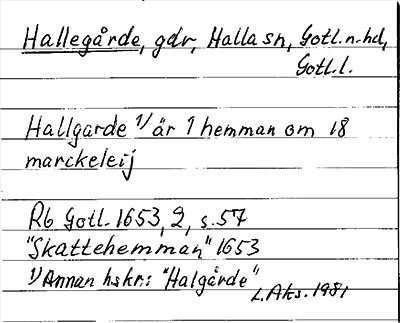 Hallegårde, gdr, Halla sn, Gotl. n. hd,
Gotl. l.
Hallgarde 1/ är 1 hemman om 18
marckeleij
Rb Gotl. 1653, 2, s. 57
"Skattehemman" 1653
1/ Annan hskr: "Halgårde"
L. Aks. 1981